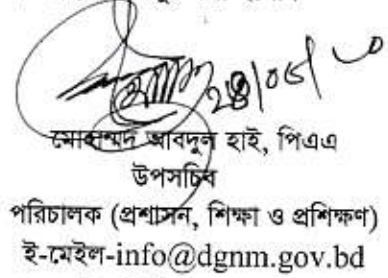 মোহাম্মদ আবদুল হাই, পিএএ
উপসচিব
পরিচালক (প্রশাসন, শিক্ষা ও প্রশিক্ষণ)
ই-মেইল-info@dgnm.gov.bd